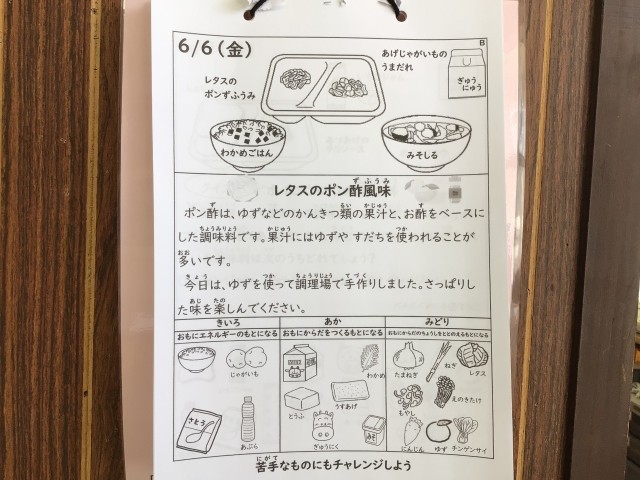 6/6(金)
あげじゃがいもの
うまだれ
B
レタスの
ポンずふうみ
ぎゅう
にゅう
わかめごはん
みそしる
レタスのポン酢風味
ずふうみ
ポン酢は、ゆずなどのかんきつ類の果汁と、お酢をベースに
ず るい かじゅう す
した調味料です。果汁にはゆずや すだちを使われることが
ちょうみりょう かじゅう つか
多いです。
おお
今日は、ゆずを使って調理場で手作りしました。さっぱりし
きょう つか ちょうりじょう てづく
た味を楽しんでください。
あじ たの
きいろ あか みどり
おもにエネルギーのもとになる おもにからだをつくるもとになる おもにからだのちょうしをととのえるもとになる
じゃがいも
わかめ
たまねぎ
ねぎ
レタス
とうふ
うすあげ
もやし
えのきたけ
さとう
あぶら
ぎゅうにく
みそ
にんじん
ゆず
チンゲンサイ
苦手なものにもチャレンジしよう
にがて